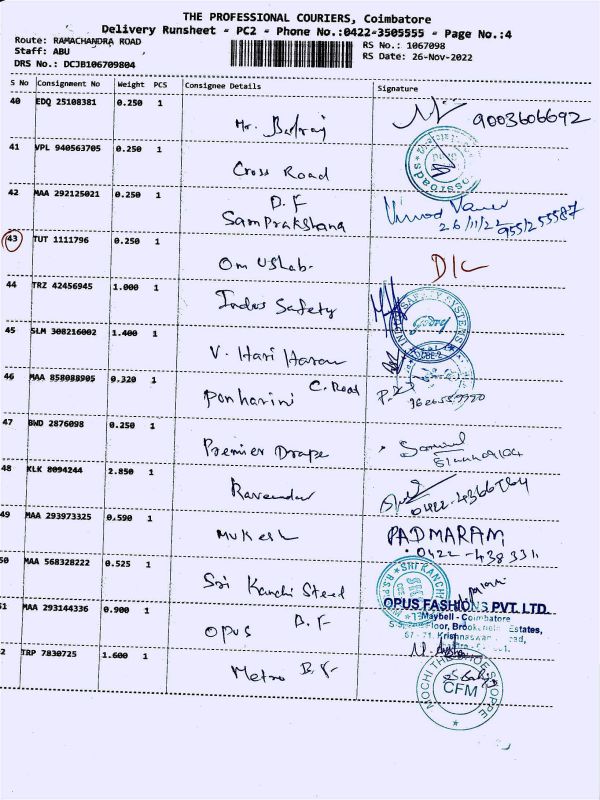 THE PROFESSIONAL COURIERS, Coimbatore
Delivery Runsheet - PC2 - Phone No.:0422-3505555 - Page No.:4
Route: RAMACHANDRA ROAD
Staff: ABU
DRS No.: DCJB106709804
RS No.: 1067098
RS Date: 26-Nov-2022
S No Consignment No Weight PCS Consignee Details Signature
40 EDQ 25108381 0.250 1
Mr. Balraj 9003606692
41 VPL 940563705 0.250 1
Cross Road
42 MAA 292125021 0.250 1
D.F
Samprakshana
26/11/22
43 TUT 1111796 0.250 1
Om Ushab. D/C
44 TRZ 42456945 1.000 1
Indus Safety
SAFETY SYSTEMS
Godrej
45 SLM 308216002 1.400 1
V. Hari Haran
46 MAA 858088905 0.320 1
Ponharini C. Road
47 BWD 2876098 0.250 1
Premier Drape
48 KLK 8094244 2.850 1
Raveendar
49 MAA 293973325 0.590 1
Mukesh PADMARAM
0422-438331
50 MAA 568328222 0.525 1
Sri Kanchi Steed
SRI KANCHI
51 MAA 293144336 0.900 1
Opus B.F
OPUS FASHIONS PVT. LTD.
Maybell - Coimbatore
Floor, Estates,
67 - 71, Krishnaswamy
TRP 7830725 1.600 1
Metro B.F
MOCHI THE SHOE SHOPPE
CFM